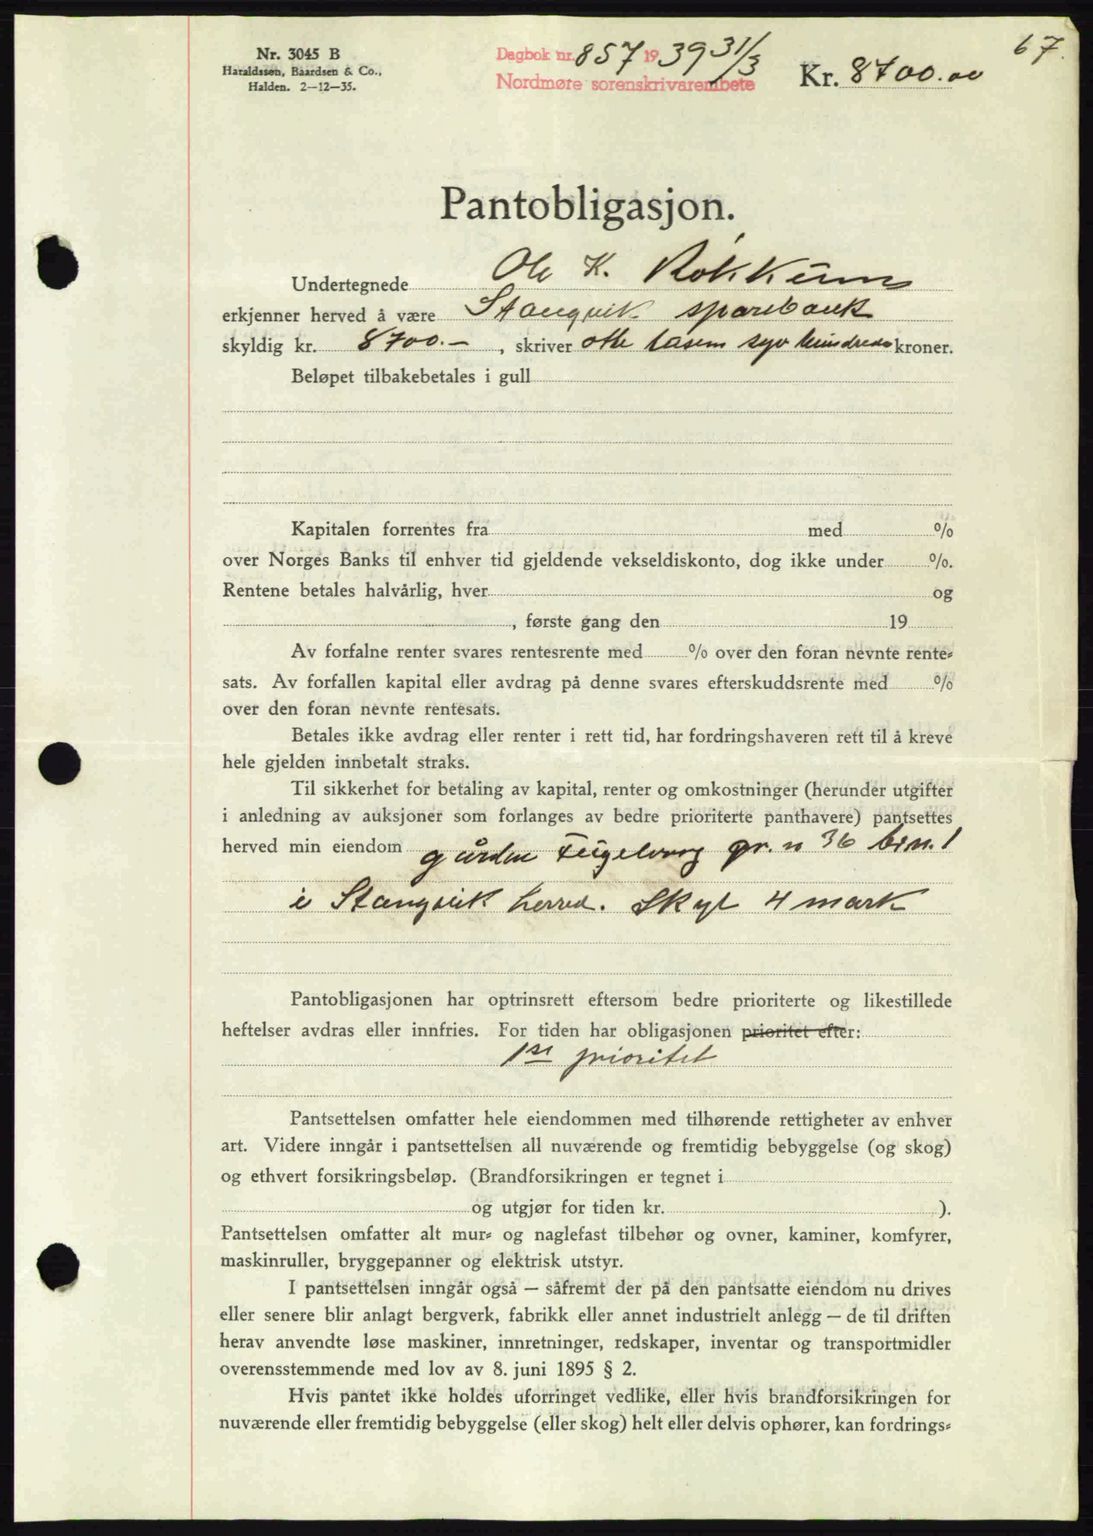 67.
Nr. 3045 B
Haraldssen, Baardsen & Co.,
Halden. 2-12-35.
Dagbok nr. 857 1939 31/3
Nordmøre sorenskrivarembete
Kr. 8700.00
Pantobligasjon.
Undertegnede Ole K. Røkkum
erkjenner herved å være Stangvik sparebank
skyldig kr. 8700.- , skriver otte tusen syv hundrede kroner.
Beløpet tilbakebetales i gull
Kapitalen forrentes fra med %
over Norges Banks til enhver tid gjeldende vekseldiskonto, dog ikke under %.
Rentene betales halvårlig, hver og
, første gang den 19
Av forfalne renter svares rentesrente med % over den foran nevnte rente-
sats. Av forfallen kapital eller avdrag på denne svares efterskuddsrente med %
over den foran nevnte rentesats.
Betales ikke avdrag eller renter i rett tid, har fordringshaveren rett til å kreve
hele gjelden innbetalt straks.
Til sikkerhet for betaling av kapital, renter og omkostninger (herunder utgifter
i anledning av auksjoner som forlanges av bedre prioriterte panthavere) pantsettes
herved min eiendom gården Fugelvåg gr. n 36 br.n. 1
i Stangvik herred. Skyl 4 mark
Pantobligasjonen har optrinsrett eftersom bedre prioriterte og likestillede
heftelser avdras eller innfries. For tiden har obligasjonen prioritet efter:
1ste prioritet
Pantsettelsen omfatter hele eiendommen med tilhørende rettigheter av enhver
art. Videre inngår i pantsettelsen all nuværende og fremtidig bebyggelse (og skog)
og ethvert forsikringsbeløp. (Brandforsikringen er tegnet i
og utgjør for tiden kr. ).
Pantsettelsen omfatter alt mur- og naglefast tilbehør og ovner, kaminer, komfyrer,
maskinruller, bryggepanner og elektrisk utstyr.
I pantsettelsen inngår også — såfremt der på den pantsatte eiendom nu drives
eller senere blir anlagt bergverk, fabrikk eller annet industrielt anlegg — de til driften
herav anvendte løse maskiner, innretninger, redskaper, inventar og transportmidler
overensstemmende med lov av 8. juni 1895 § 2.
Hvis pantet ikke holdes uforringet vedlike, eller hvis brandforsikringen for
nuværende eller fremtidig bebyggelse (eller skog) helt eller delvis ophører, kan fordrings-